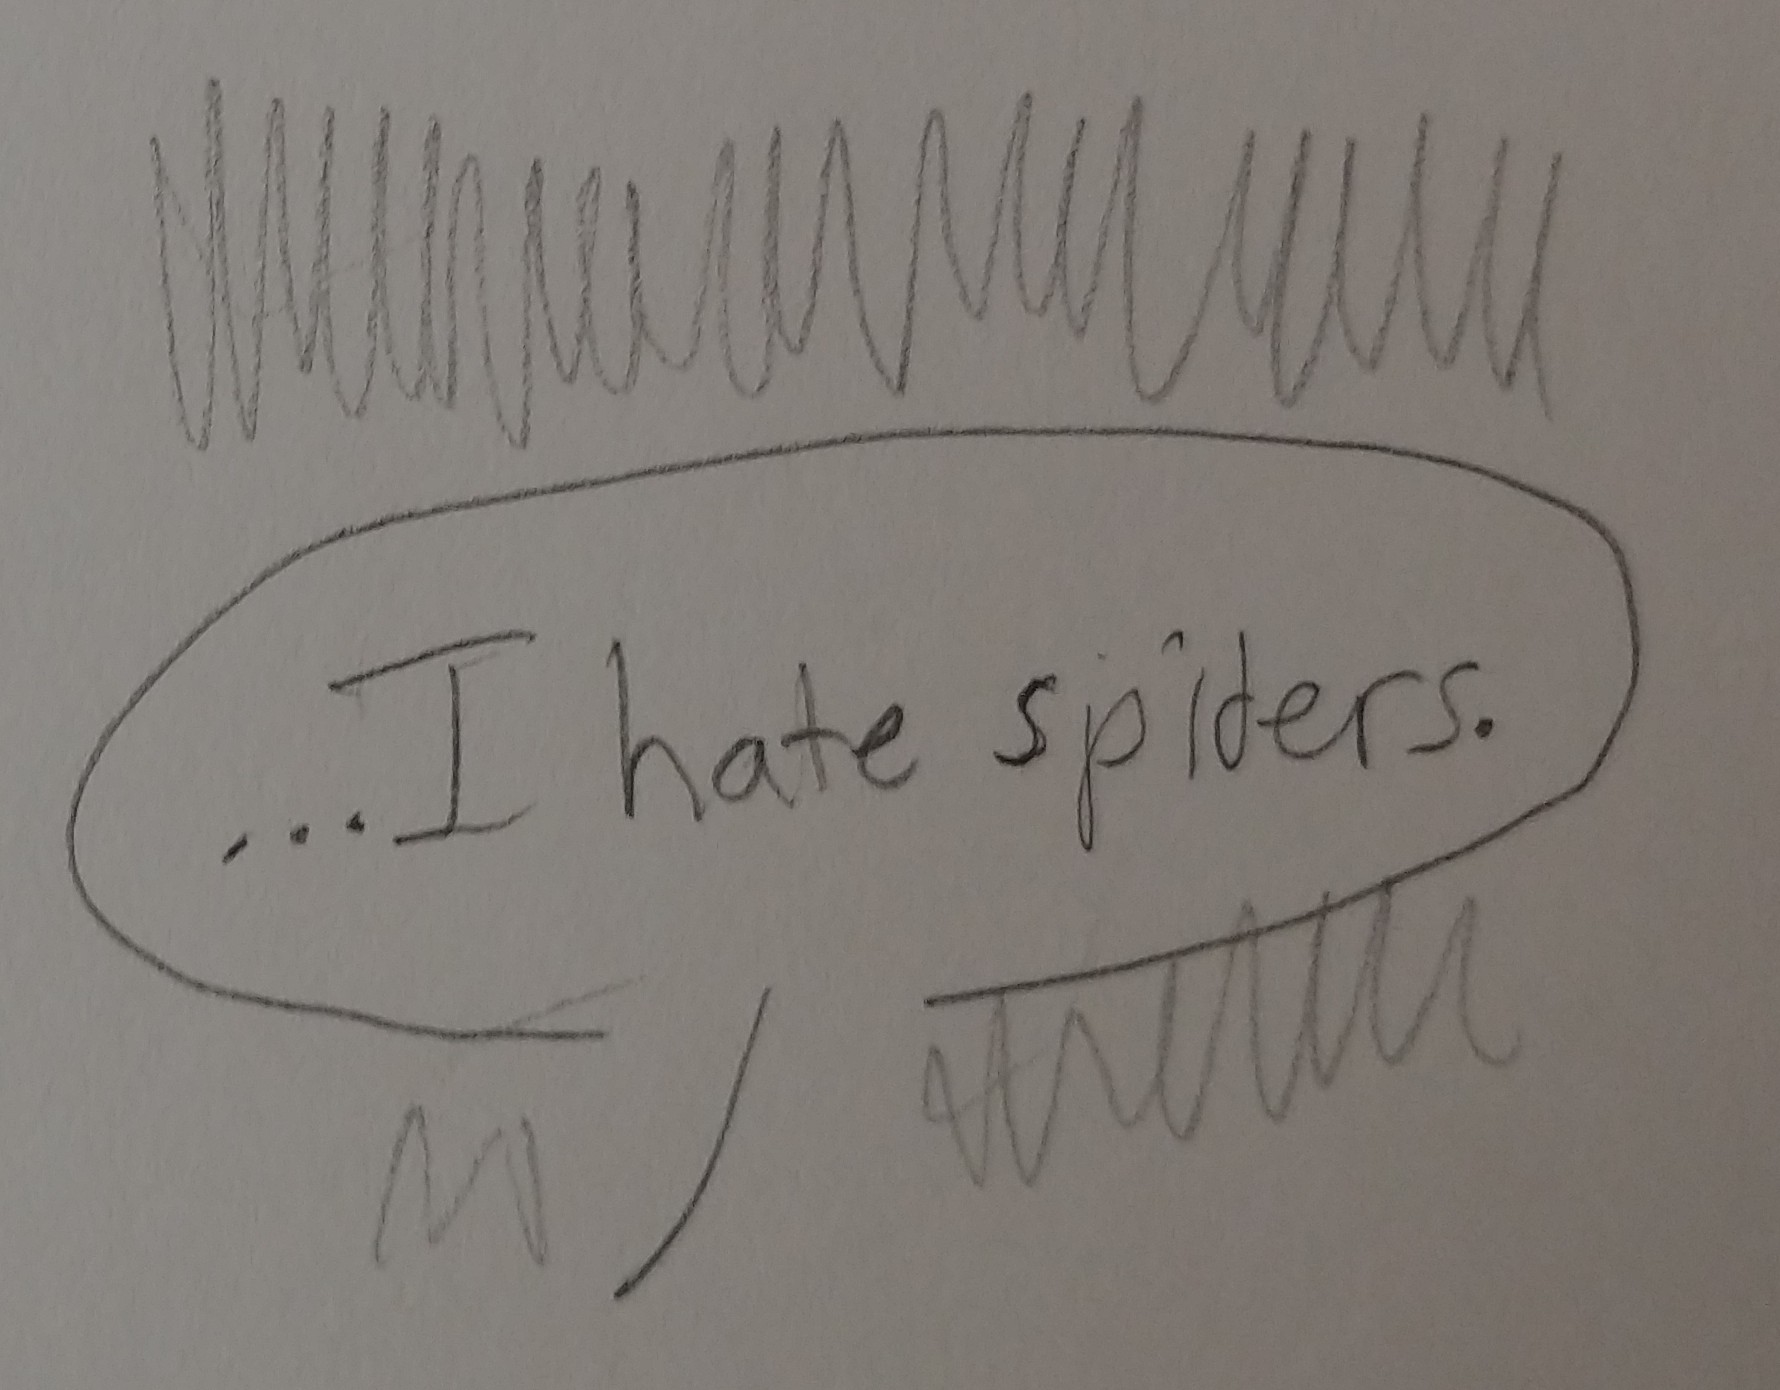 ...I hate spiders.